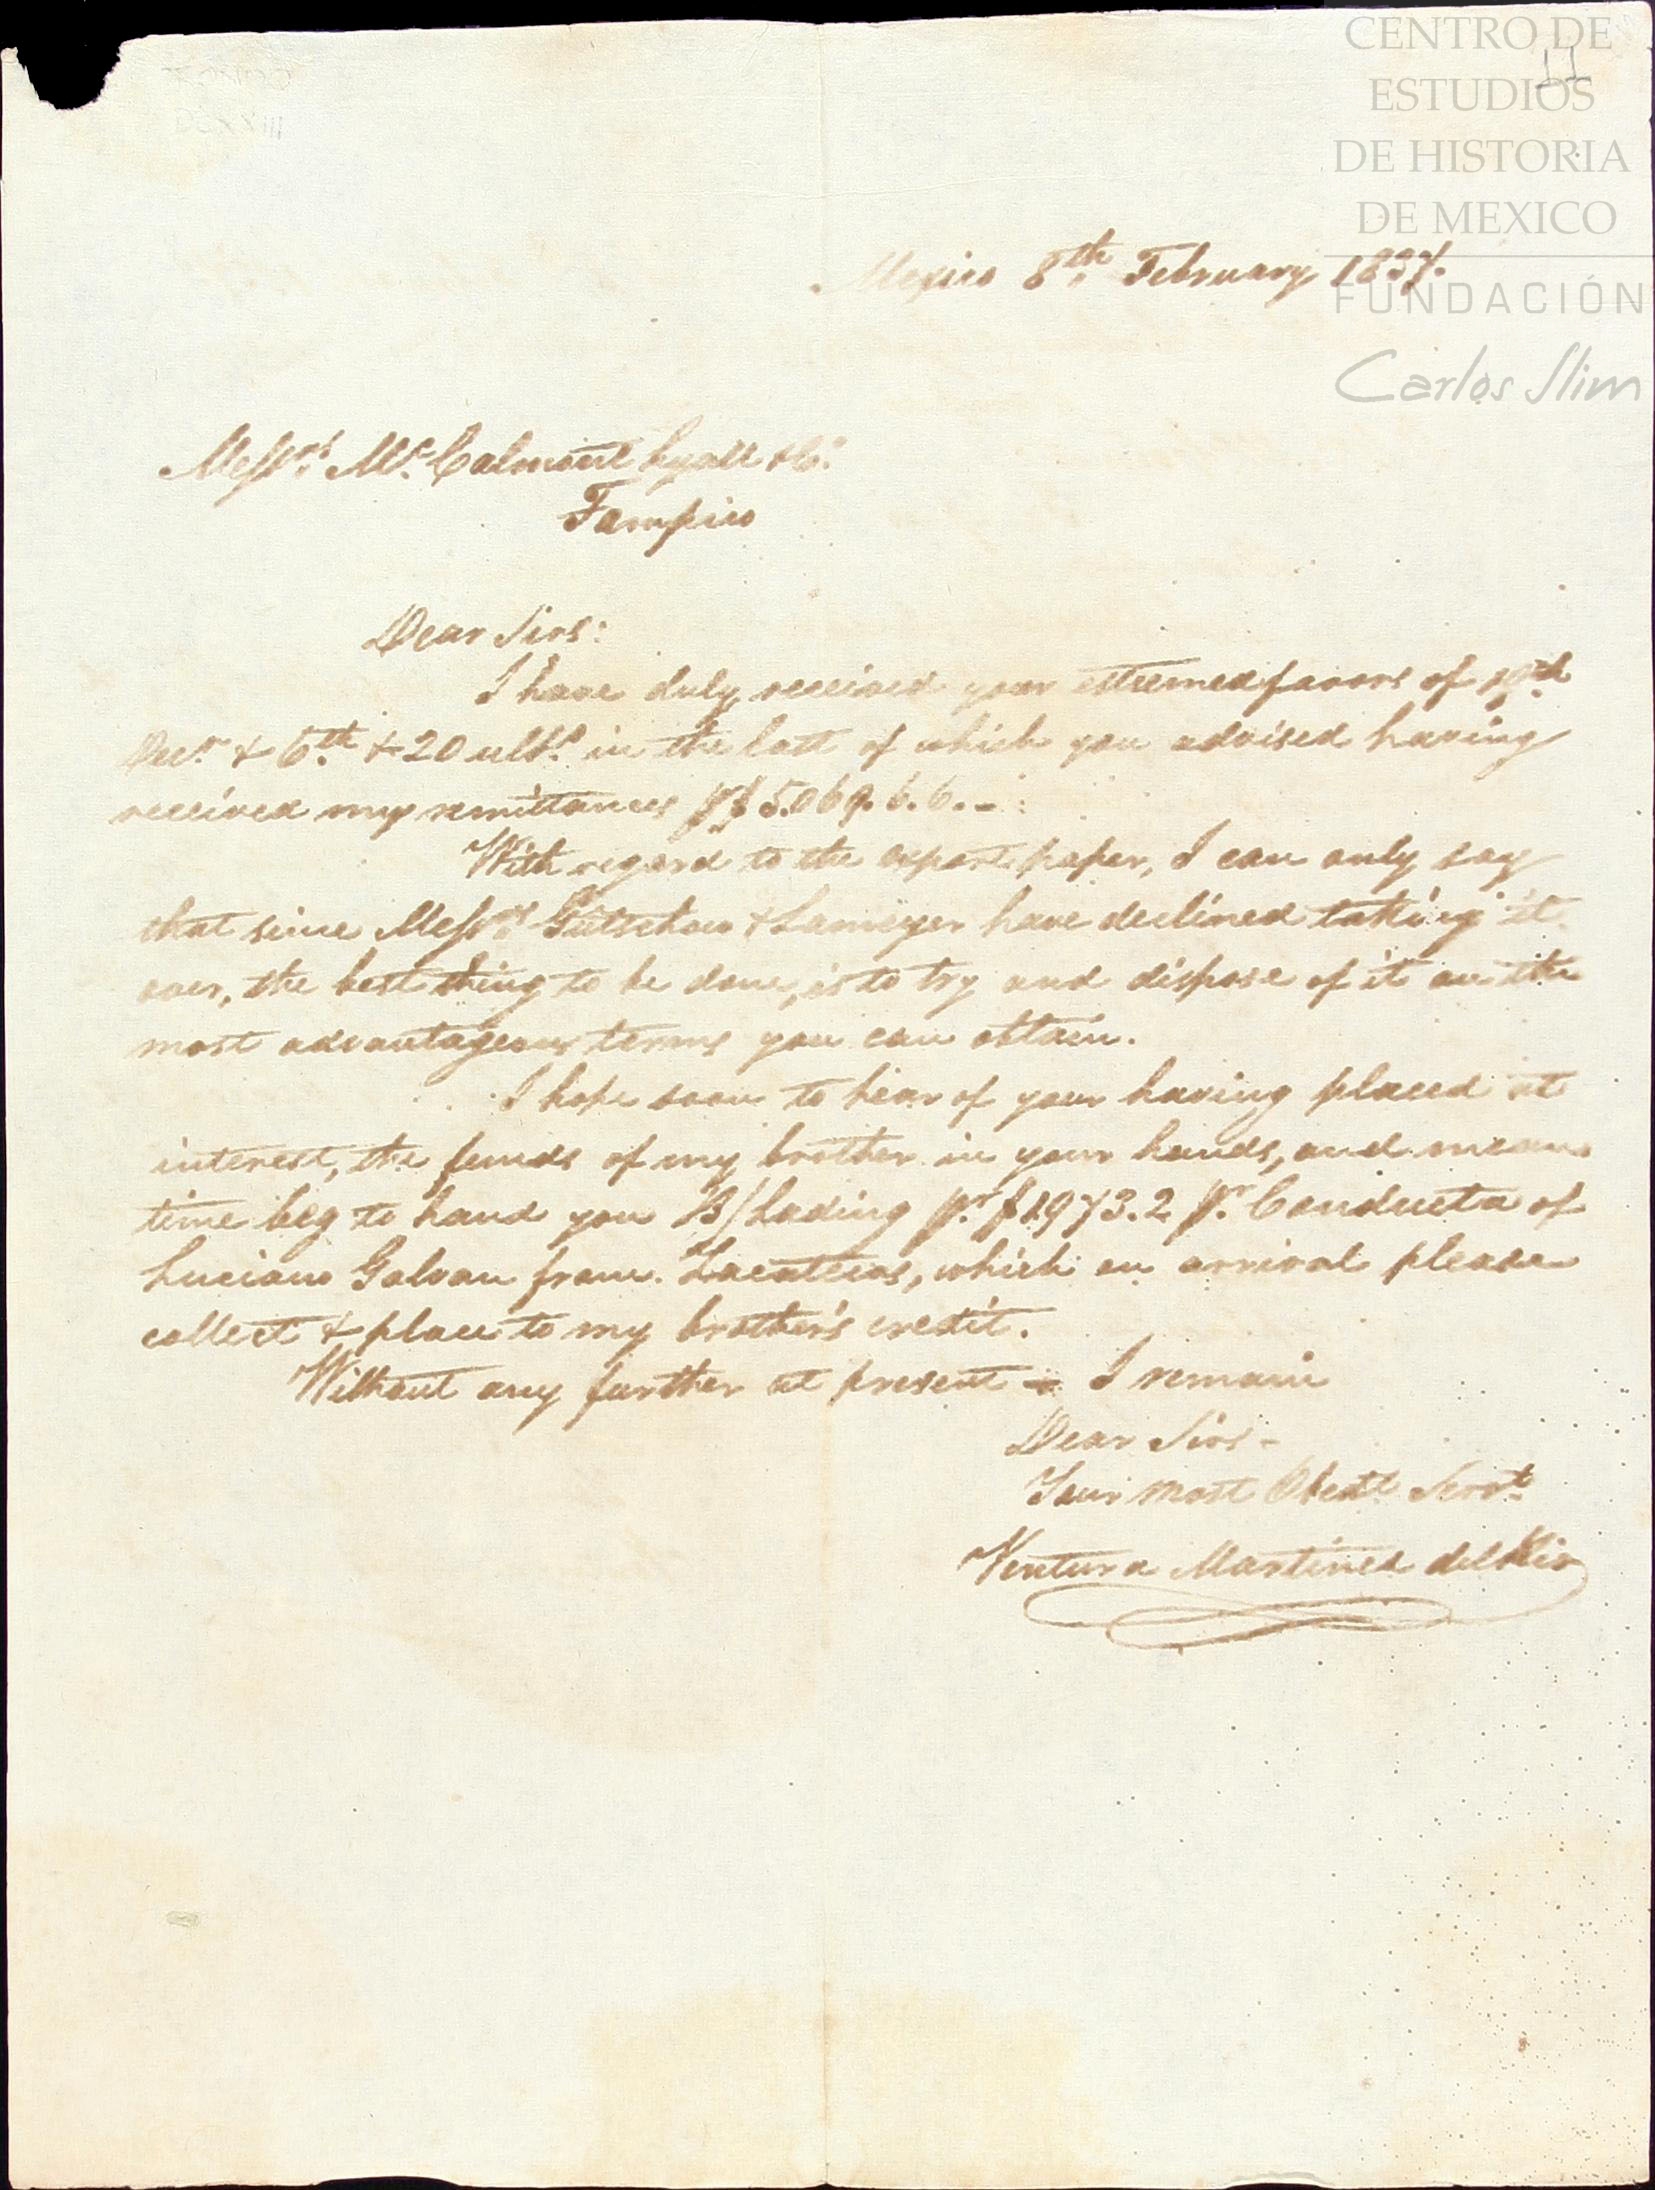 CENTRO DE
ESTUDIOS
DE HISTORIA
DE MEXICO
FUNDACIÓN
Carlos Slim
11
Mexico 8th February 1837.
Messrs. Mc. Calmont Lyall & Co.
Tampico
Dear Sirs:
I have duly received your esteemed favors of
Decr. & 6th. & 20 ulto. in the last of which you advised having
received my remittances pr $ 5.069. 6. 6. -
With regard to the export paper, I can only say
that since Messrs. Gütschow & Lameyer have declined taking it
over, the best thing to be done, is to try and dispose of it on the
most advantageous terms you can obtain.
I hope soon to hear of your having placed at
interest, the funds of my brother in your hands, and mean
time beg to hand you B/Lading pr. $ 1973.2 pr. Conducta of
Luciano Galvan from Zacatecas, which on arrival please
collect & place to my brother's credit.
Without any further at present - I remain
Dear Sirs -
Your most Obedt. Servt.
Ventura Martinez del Rio